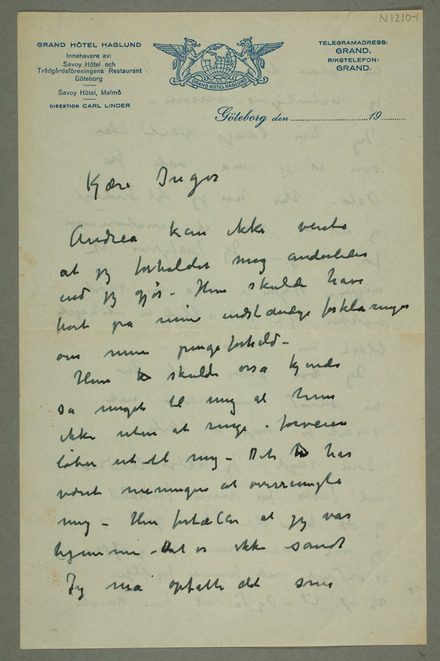 N1210-1
GRAND HÔTEL HAGLUND
Innehavare av:
Savoy Hôtel och
Trädgårdsföreningens Restaurant
Göteborg
Savoy Hôtel, Malmö
DIREKTION CARL LINDER
GRAND HÔTEL HAGLUND
TELEGRAMADRESS:
GRAND.
RIKSTELEFON:
GRAND.
Göteborg den 19
Kjære Inger
Andrea kan ikke vente
at jeg forholder mig anderledes
end jeg gjør - Hun skulde have
hørt på mine indstændige forklaringer
om mine pengeforhold -
Hun skulde også kjende
så meget til mig at hun
ikke uden at ringe i forveien
løber ud til mig - Det har
været meningen at overrumple
mig - Hun fortæller at jeg var
hjemme - Det er ikke sandt
Jeg må opfatte det som